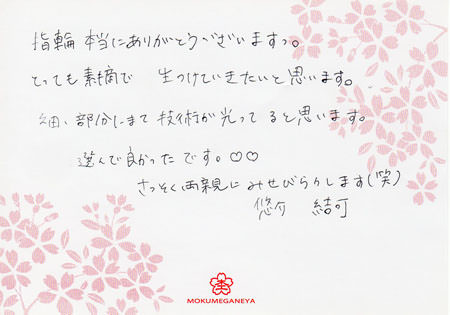 指輪 本当にありがとうございますっ。
とっても素摘で 生つけていきたいと思います。
細い部分にまで 技術が光ってると思います。
選んで良かったです。♡♡
さっそく両親にみせびらかします(笑)
悠介 結可
MOKUMEGANEYA